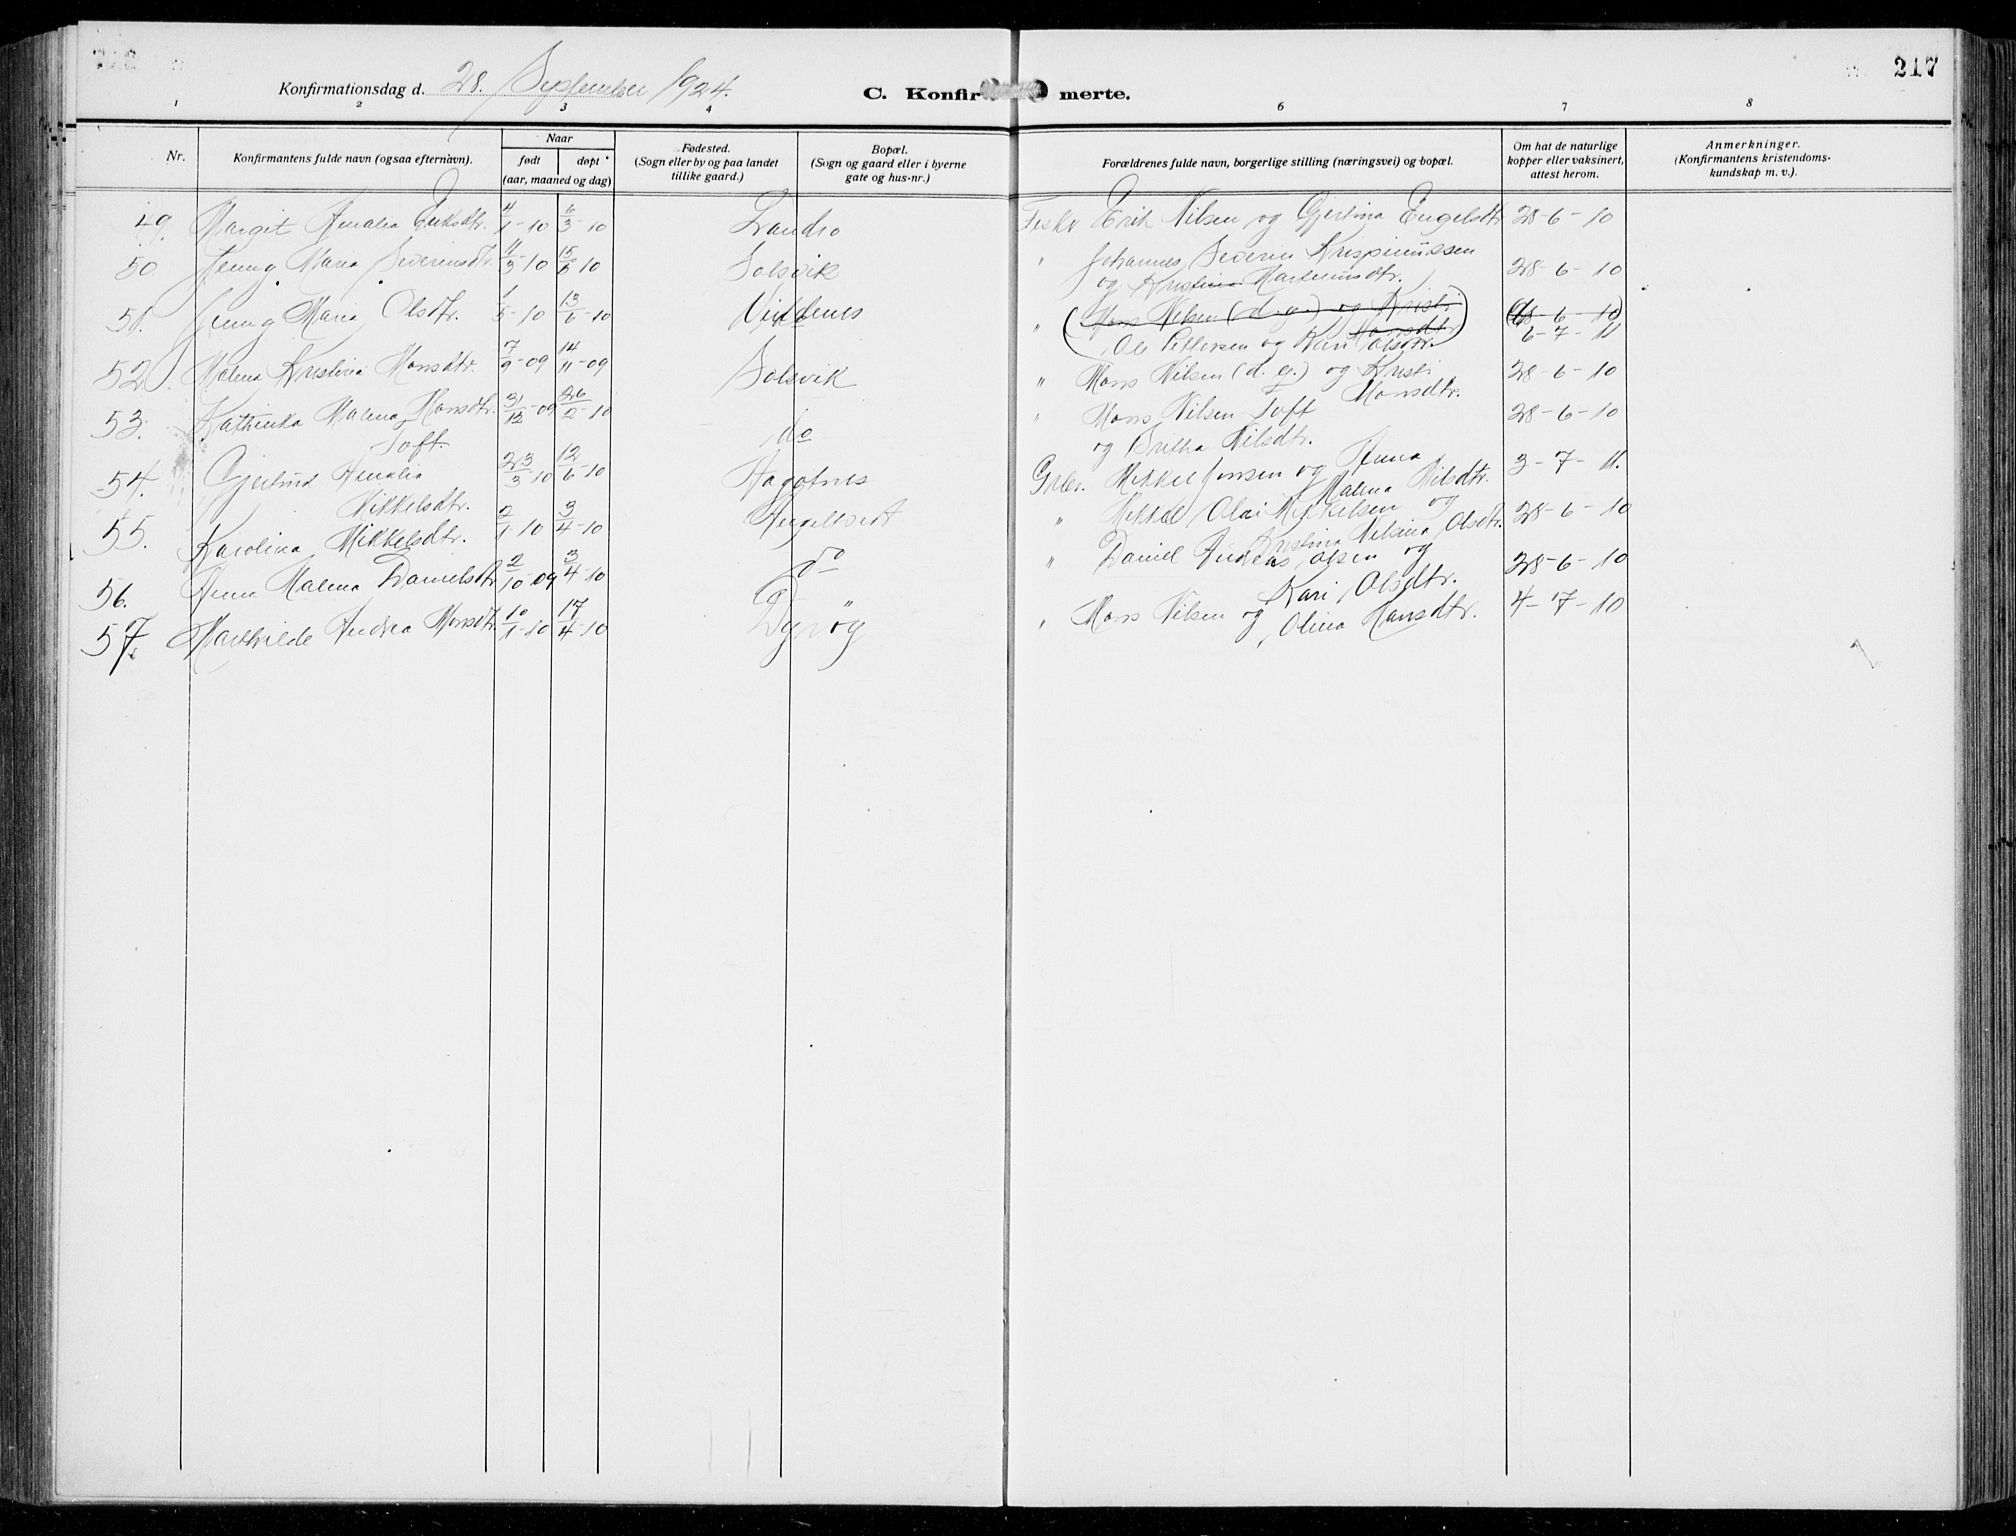 217
Konfirmationsdag d. 28. September 1924.
C. Konfirmerte.
1 2 3 4 6 7 8
Nr.
Konfirmantens fulde navn (ogsaa efternavn).
Naar
født døpt
(aar, maaned og dag)
Fødested.
(Sogn eller by og paa landet
tillike gaard.)
Bopæl.
(Sogn og gaard eller i byerne
gate og hus-nr.)
Forældrenes fulde navn, borgerlige stilling (næringsvei) og bopæl.
Om hat de naturlige
kopper eller vaksinert,
attest herom.
Anmerkninger.
(Konfirmantens kristendoms-
kundskap m. v.).
49. Margit Amalia Eriksdtr. 4/1-10 6/3-10 Landro Fisker Erik Nilsen og Gjertina Engelsdtr 28-6-10
50 Jenny Maria Severinsdtr. 11/3-10 15/5 10 Solsvik " Johannes Severin Krispinussen
og Kristina Martinusdtr. 28-6-10
51. Jenny Maria Olsdtr. 1/5-10 13/6-10 Vindenes " (Mons Nilsen (d. g.) og Kristi
Monsdtr) (28-6-10)
Ole Pettersen og Kari Olsdtr. 6-7-11
52. Malena Kristina Monsdtr. 7/9-09 14/11-09 Solsvik " Mons Nilsen (d. e.) og Kristi
Monsdtr. 28-6-10
53. Kathinka Malena Monsdtr.
Toft. 31/12-09 26/2-10 do " Mons Nilsen Toft
og Britha Nilsdtr. 28-6-10
54. Gjertrud Amalia
Mikkelsdtr. 23/3 10 12/6-10 Hagotnes Grbr. Mikkel Jensen og Anna
Malena Nilsdtr. 3-7-11.
55. Karolina Mikkelsdtr. 2/1-10 3/4-10 Angeltveit " Mikkel Olai Mikkelsen og
Kristina Nilsina Olsdtr. 28-6-10
56. Anna Malena Danielsdtr 2/10-09 3/4-10 do " Daniel Andreas Olsen og
Kari Olsdtr. 28-6-10
57. Mathilde Andrea Monsdtr 10/1-10 17/4-10 Dyrøy " Mons Nilsen og
Olina Hansdtr. 4-7-10